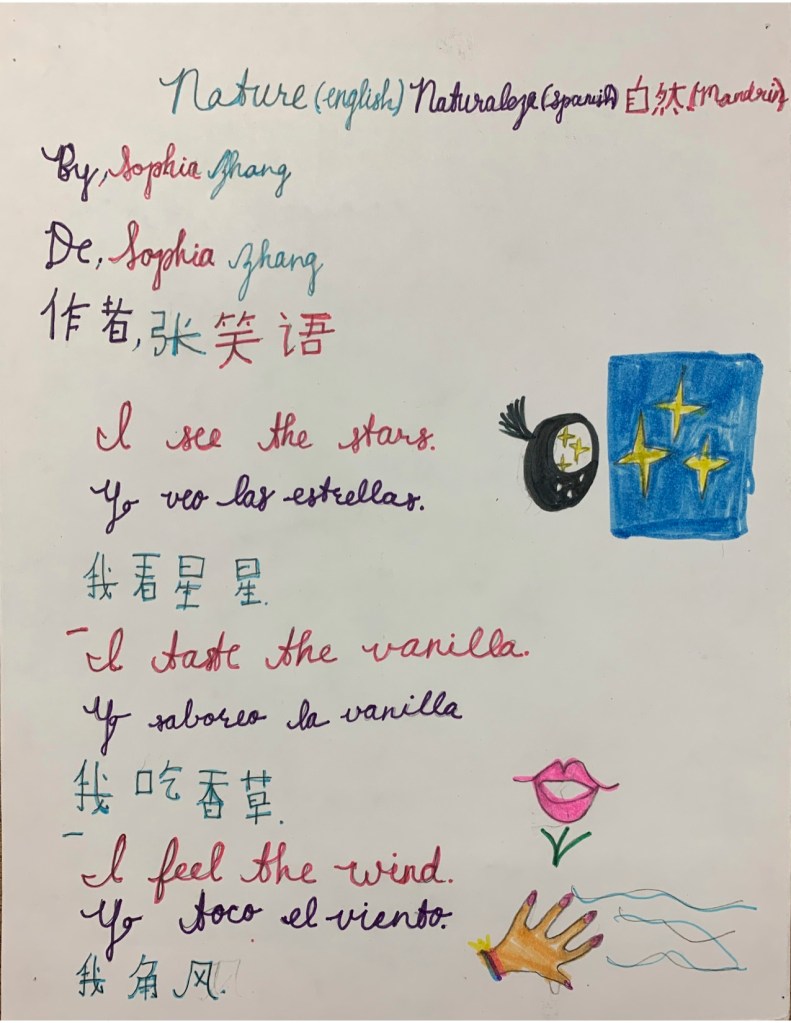 Nature (english) Naturaleza (spanish) 自然 (Mandrin)
By, Sophia Zhang
De, Sophia Zhang
作者, 张笑语
I see the stars.
Yo veo las estrellas.
我看星星.
I taste the vanilla.
Yo saboreo la vanilla
我吃香草.
I feel the wind.
Yo toco el viento.
我角风.